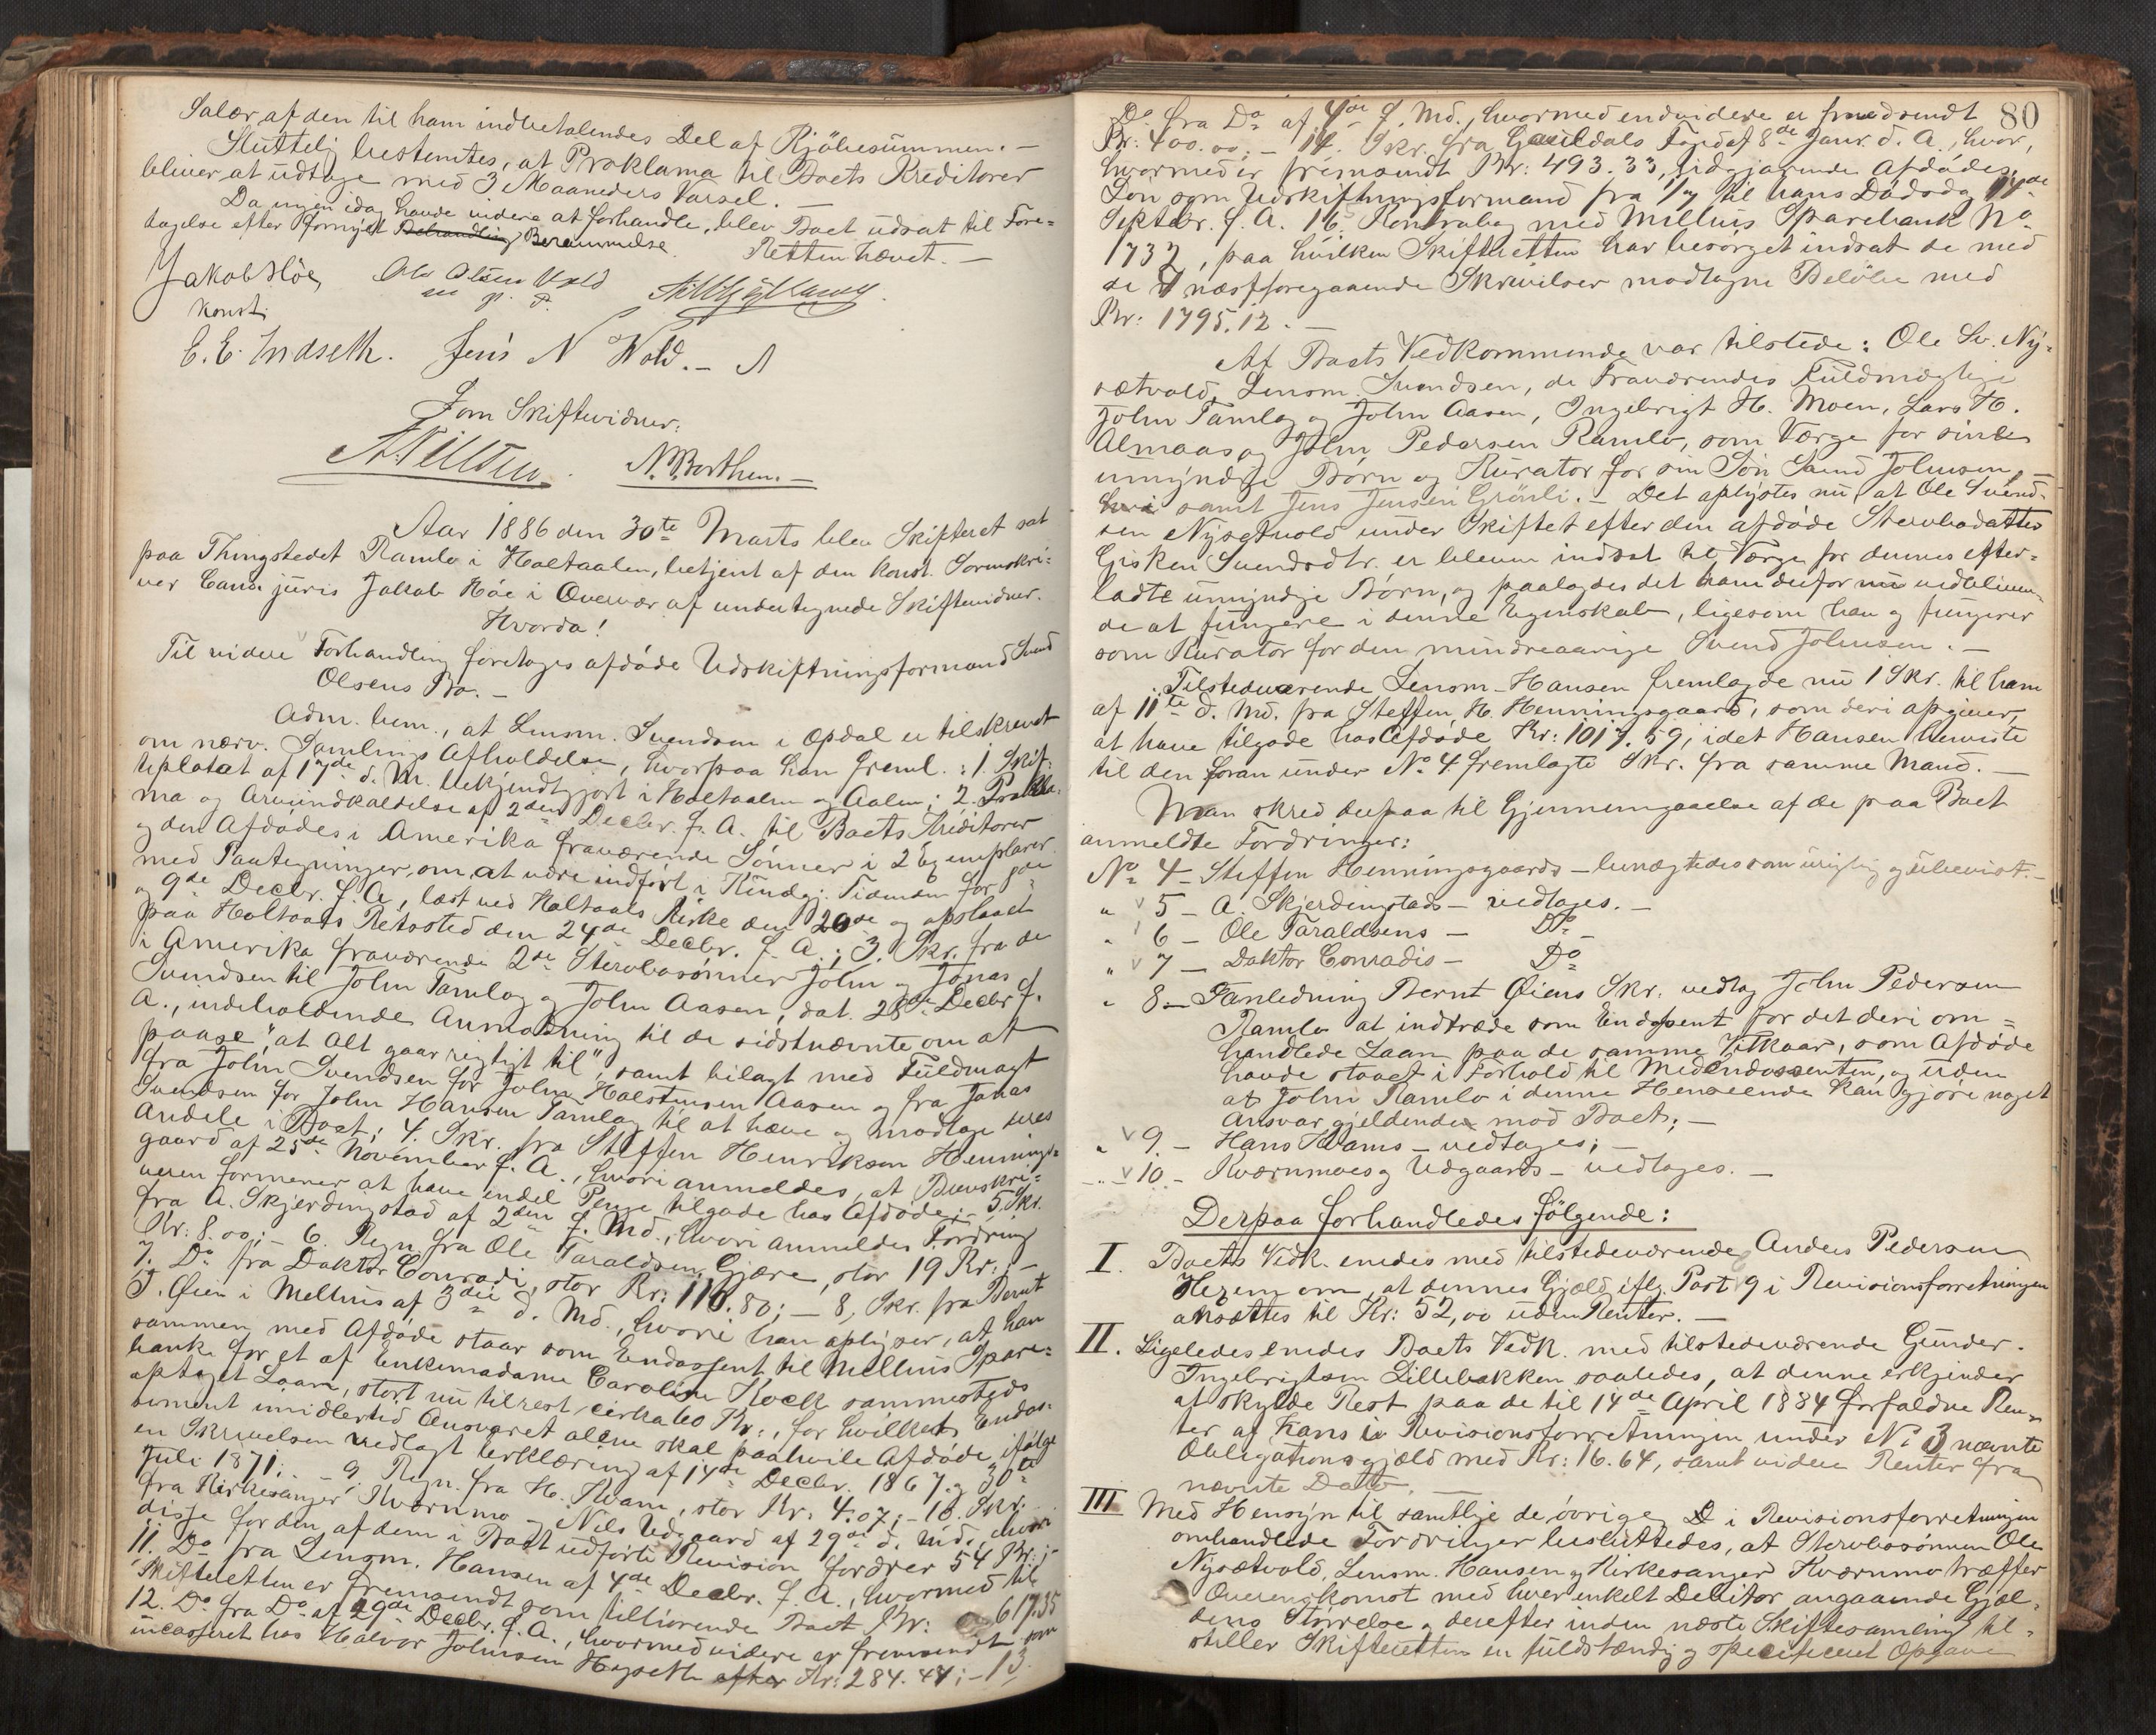 Salær af den til ham indbetalendes Del af Kjöbesummen. –
Sluttelig bestemtes, at Proklama til Boets Kreditorer
bliver at udtage med 3 Maaneders Varsel. –
Da ingen idag havde videre at forhandle, blev Boet udsat til Fore=
tagelse efter fornyet Behandling Berammelse.
Retten hævet. –
Jakob Höe Ole Olsen Vold
konst. m. p. P.
E. E. Indseth. Jens N Wold. –
Som Skiftevidner:
N. Borthen. –
Aar 1886 den 30te Marts blev Skifteret sat
paa Thingstedet Ramlo i Holtaalen, betjent af den konst. Sorenskri=
ver Cand. juris Jakob Höe i Overvær af undertegnede Skiftevidner.
Hvorda!
Til videre Forhandling foretoges afdöde Udskiftningsformand Svend
Olsens Bo. –
Adm. bem., at Lensm. Svendsen i Opdal er tilskrevet
om nærv. Samlings Afholdelse, hvorpaa han freml.: 1. Skif=
teplakat af 17de d. M. bekjendtgjort i Holtaalen og Aalen; 2. Prokla=
ma og Arveindkaldelse af 2den Decbr. f. A. til Boets Kreditorer
og den Afdödes i Amerika fraværende Sönner i 2 Exemplarer
med Paategninger, om at være indfört i Kundgj. Tidende for
og 9de Decbr. f. A., læst ved Holtaals Kirke den 20de og opslaaet
paa Holtaals Retssted den 24de Decbr. f. A.; 3. Skr. fra de
i Amerika fraværende 2de Stervbosönner John og Jonas
Svendsen til John Tamlag og John Aasen, dat. 28de Decbr f.
A., indeholdende Anmodning til de sidstnævnte om at
paase, "at Alt gaar rigtigt til", samt bilagt med Fuldmagt
fra John Svendsen for John Halstensen Aasen og fra Jonas
Svendsen for John Hansen Tamlag til at hæve og modtage deres
Andele i Boet; 4. Skr. fra Steffen Henriksen Hennings=
gaard af 25de November f. A., hvori anmeldes, at Brevskri=
veren formener at have endel Penge tilgode hos Afdöde; – 5. Skr.
fra A. Skjerdingstad af 2den f. Md., hvori anmeldes Fordring
Kr: 8.00; – 6. Regn. fra Ole Taraldsen Gjære, stor 19 Kr.; –
7. Do fra Doktor Conradi, stor Kr: 118.80; – 8. Skr. fra Bernt
J. Öien i Melhus af 3die d. Md., hvori han oplyser, at han
sammen med Afdöde staar som Endossent til Melhus Spare=
bank for et af Enkemadame Caroline Koch sammesteds
optaget Laan, stort nu tilrest cirka 60 Kr., for hvilket Endos=
sement imidlertid Ansvaret alene skal paahvile Afdöde ifölge
en Skrivelsen vedlagt Erklæring af 14de Decbr. 1867 og 30te
Juli 1871; – 9. Regn. fra H. Kvam, stor Kr: 4.07; – 10. Skr.
fra Kirkesanger Kværnmo og Nils Udgaard af 29de d. Md., hvori
disse for den af dem i Boet udförte Revision fordrer 54 Kr.; –
11. Do fra Lensm. Hansen af 4de Decbr. f. A., hvormed til
Skifteretten er fremsendt som tilhörende Boet Kr: 617.35
12. Do fra Do af 29de Decbr. f. A., hvormed videre er fremsendt som
incasseret hos Halvor Johnsen Hegseth efter Kr: 284.44; – 13.
80
Do fra Do af 4de f. Md., hvormed endvidere er fremsendt
Kr: 400.00; – 14. Skr. fra Guldals Fogd af 8de Janr. d. A., hvor,
hvormed er fremsendt Kr: 493.33, udgjörende Afdödes
Lön som Udskiftningsformand fra 1/7 til hans Dödsdag 14de
Septbr. f. A. 15. Kontrabog med Melhus Sparebank No
1737, paa hvilken Skifteretten har besörget indsat de med
de 4 næstforegaaende Skrivelser modtagne Belöbe med
Kr: 1795.12. –
Af Boets Vedkommende var tilstede: Ole Sv. Ny=
sætvold, Lensm. Svendsen, de Fraværendes Fuldmægtige
John Tamlag og John Aasen, Ingebrigt H. Moen, Lars H.
Almaas og John Pedersen Ramlo, som Værge for sine
umyndige Börn og Kurator for sin Sön Svend Johnsen, –
hvori samt Jens Jensen Grönli. – Det oplystes nu, at Ole Svend=
sen Nysætvold under Skiftet efter den afdöde Stervbodatter
Gisken Svendsdtr. er bleven indsat til Værge for dennes efter=
ladte umyndige Börn, og paalagdes det ham derfor nu vedbliven=
de at fungere i denne Egenskab, ligesom han og fungerer
som Kurator for den mindreaarige Svend Johnsen. –
Tilstedeværende Lensm. Hansen fremlagde nu 1 Skr. til ham
af 11te d. Md. fra Steffen H. Henningsgaard, som deri opgiver,
at have tilgode hos Afdöde Kr: 1017.59, idet Hansen henviste
til den foran under No 4 fremlagte Skr. fra samme Mand. –
Man skred derpaa til Gjennemgaaelse af de paa Boet
anmeldte Fordringer:
No 4 – Steffen Henningsgaards – benægtedes som urigtig og ubevist. –
" 5 – A. Skjerdingstads – vedtages. –
" 6 – Ole Taraldsens – Do –
" 7 – Doktor Conradis – Do
" 8 – I Anledning Bernt Öiens Skr. vedtog John Pedersen
Ramlo at indtræde som Endossent for det deri om=
handlede Laan paa de samme Vilkaar, som Afdöde
havde staaet i Forhold til Medendossenten, og uden
at John Ramlo i denne Henseende kan gjöre noget
Ansvar gjeldende mod Boet; –
" 9. – Hans Kvams – vedtages; –
" 10. – Kværnmoes og Udgaards – vedtages. –
Derpaa forhandledes fölgende:
I. Boets Vedk. enedes med tilstedeværende Anders Pedersen
om, at dennes Gjæld iflg. Post 9 i Revisionsforretningen
ansættes til Kr: 52,00 uden Renter. –
II. Ligeledes enedes Boets Vedk. med tilstedeværende Gunder
Ingebrigtsen Lillebakken saaledes, at denne erkjender
at skylde Rest paa de til 14de April 1884 forfaldne Ren=
ter af hans i Revisionsforretningen under No 3 nævnte
Obligationsgjæld med Kr: 16.64, samt videre Renter fra
nævnte Dato. –
III Med Hensyn til samtlige de övrige i Revisionsforretningen
omhandlede Fordringer besluttedes, at Stervbosönnen Ole
Nysætvold, Lensm. Hansen og Kirkesanger Kværnmo træffer
Overenskomst med hver enkelt Debitor angaaende Gjæl=
dens Störrelse og derefter inden næste Skiftesamling til=
stiller Skifteretten en fuldstændig og specificeret Opgave